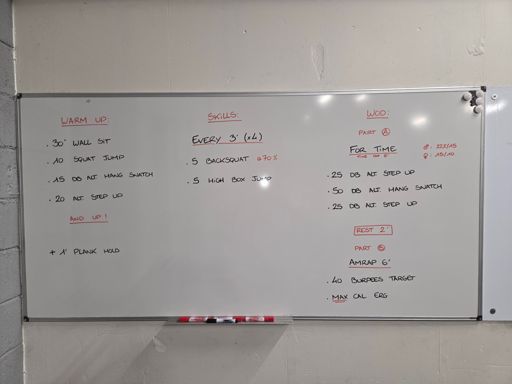 WARM UP:
. 30" WALL SIT
. 10 SQUAT JUMP
. 15 DB ALT. HANG SNATCH
. 20 ALT. STEP UP
AND UP!
+ 1' PLANK HOLD
SKILLS:
EVERY 3' (x4)
. 5 BACKSQUAT @70%
. 5 HIGH BOX JUMP
WOD:
PART A
FOR TIME
♂: 22,5/15
♀: 15/10
. 25 DB ALT. STEP UP
. 50 DB ALT. HANG SNATCH
. 25 DB ALT. STEP UP
REST 2'
PART B
AMRAP 6'
. 40 BURPEES TARGET
. MAX CAL ERG